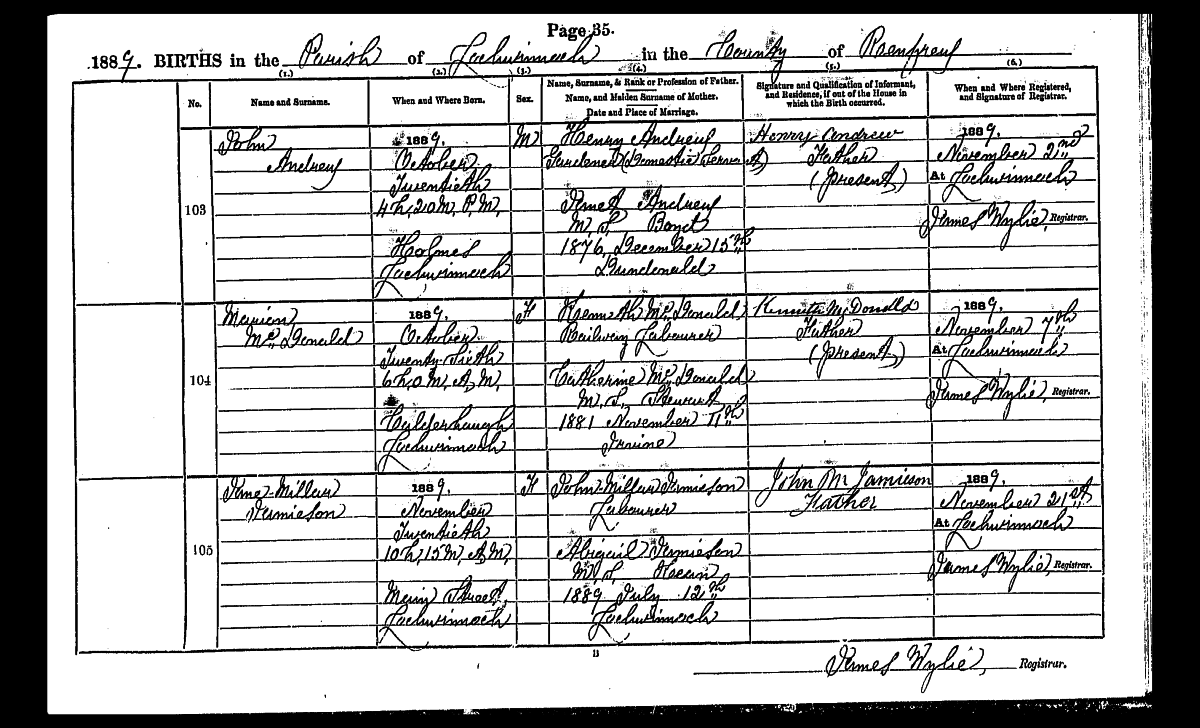 Page 35.
1889. BIRTHS in the Parish of Lochwinnoch in the County of Renfrew
(1.) (2.) (3.) (4.) (5.) (6.)
No.
Name and Surname.
When and Where Born.
Sex.
Name, Surname, & Rank or Profession of Father.
Name, and Maiden Surname of Mother.
Date and Place of Marriage.
Signature and Qualification of Informant,
and Residence, if out of the House in
which the Birth occurred.
When and Where Registered,
and Signature of Registrar.
103
John
Andrew
1889.
October
Twentieth
4h, 20m, P.M,
Holmes
Lochwinnoch
M
Henry Andrew
Gardener (Domestic Servant)
Janet Andrew
M.S. Boyd
1876, December 15th
Dundonald
Henry Andrew
Father
(Present)
1889.
November 2nd
At Lochwinnoch
James Wylie, Registrar.
104
Marion
McDonald
1889.
October
6h, 0m, A.M,
Calderhaugh
Lochwinnoch
F
Kenneth McDonald
Railway Labourer
Catherine McDonald
M.S. Stewart
1881 November 11th
Irvine
Kenneth McDonald
Father
(Present)
1889.
November 7th
At Lochwinnoch
James Wylie, Registrar.
105
Jane Millar
Jamieson
1889.
November
Twentieth
10h, 15m, A.M,
Main Street,
Lochwinnoch
F
John Millar Jamieson
Labourer
Abigail Jamieson
M.S.
1889 July 12th
Lochwinnoch
John M Jamieson
Father
1889.
November 21st
At Lochwinnoch
James Wylie, Registrar.
James Wylie, Registrar.